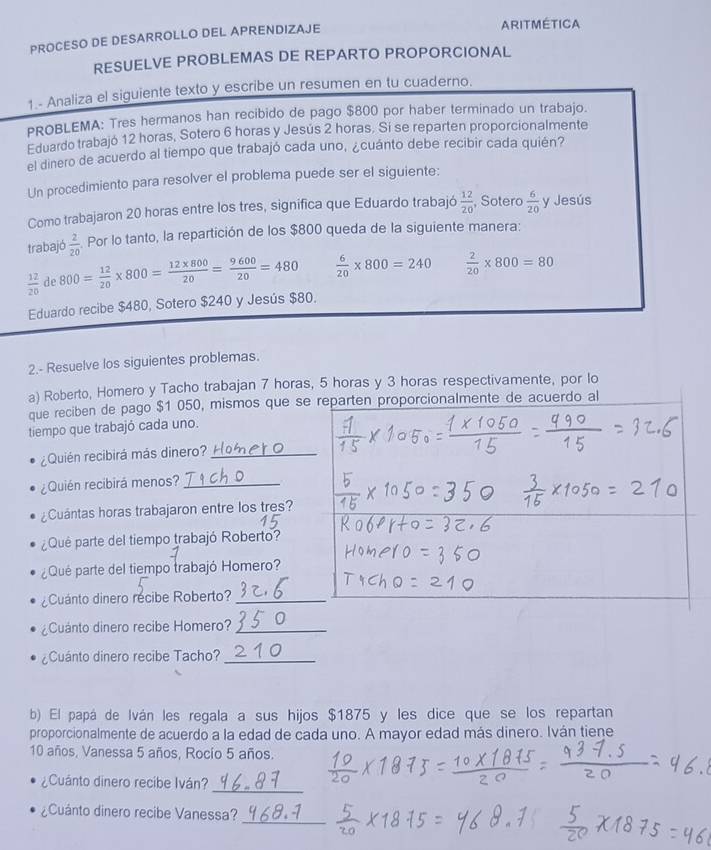 PROCESO DE DESARROLLO DEL APRENDIZAJE
ARITMÉTICA
RESUELVE PROBLEMAS DE REPARTO PROPORCIONAL
1.- Analiza el siguiente texto y escribe un resumen en tu cuaderno.
PROBLEMA: Tres hermanos han recibido de pago $800 por haber terminado un trabajo.
Eduardo trabajó 12 horas, Sotero 6 horas y Jesús 2 horas. Si se reparten proporcionalmente
el dinero de acuerdo al tiempo que trabajó cada uno, ¿cuánto debe recibir cada quién?
Un procedimiento para resolver el problema puede ser el siguiente:
Como trabajaron 20 horas entre los tres, significa que Eduardo trabajó 12/20, Sotero 6/20 y Jesús
trabajó 2/20. Por lo tanto, la repartición de los $800 queda de la siguiente manera:
12/20 de 800 = 12/20 x 800 = 12 x 800/20 = 9 600/20 = 480 6/20 x 800 = 240 2/20 x 800 = 80
Eduardo recibe $480, Sotero $240 y Jesús $80.
2.- Resuelve los siguientes problemas.
a) Roberto, Homero y Tacho trabajan 7 horas, 5 horas y 3 horas respectivamente, por lo
que reciben de pago $1 050, mismos que se reparten proporcionalmente de acuerdo al
tiempo que trabajó cada uno.
7/15 x 1050 = 1 x 1050/15 = 490/15 = 32.6
• ¿Quién recibirá más dinero? Homero
• ¿Quién recibirá menos? Tacho
5/15 x 1050 = 350 3/15 x 1050 = 210
• ¿Cuántas horas trabajaron entre los tres?
15
Roberto = 32.6
• ¿Qué parte del tiempo trabajó Roberto?
7
Homero = 350
• ¿Qué parte del tiempo trabajó Homero?
5
Tacho = 210
• ¿Cuánto dinero recibe Roberto? 32.6
• ¿Cuánto dinero recibe Homero? 350
• ¿Cuánto dinero recibe Tacho? 210
b) El papá de Iván les regala a sus hijos $1875 y les dice que se los repartan
proporcionalmente de acuerdo a la edad de cada uno. A mayor edad más dinero. Iván tiene
10 años, Vanessa 5 años, Rocío 5 años.
10/20 x 1875 = 10 x 1875/20 = 937.5/20 = 46.8
• ¿Cuánto dinero recibe Iván? 46.87
• ¿Cuánto dinero recibe Vanessa? 468.7
5/20 x 1875 = 468.7 5/20 x 1875 = 46